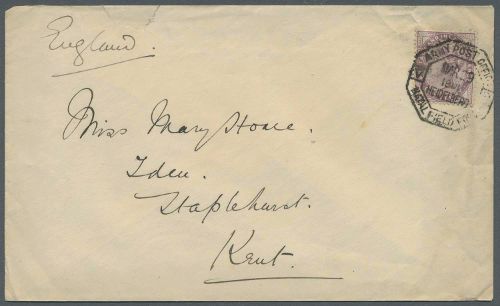 England.
ARMY POST OFFICE
MAR 9
HEIDELBERG
NATAL FIELD FORCE
Miss Mary Hone.
Iden.
Staplehurst.
Kent.